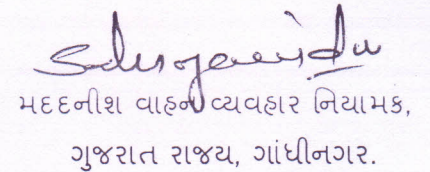 મદદનીશ વાહન વ્યવહાર નિયામક,
ગુજરાત રાજય, ગાંધીનગર.